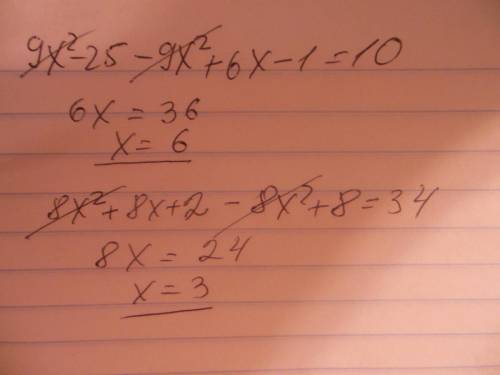 9x²-25-9x²+6x-1=10
6x=36
x=6
8x²+8x+2-8x²+8=34
8x=24
x=3